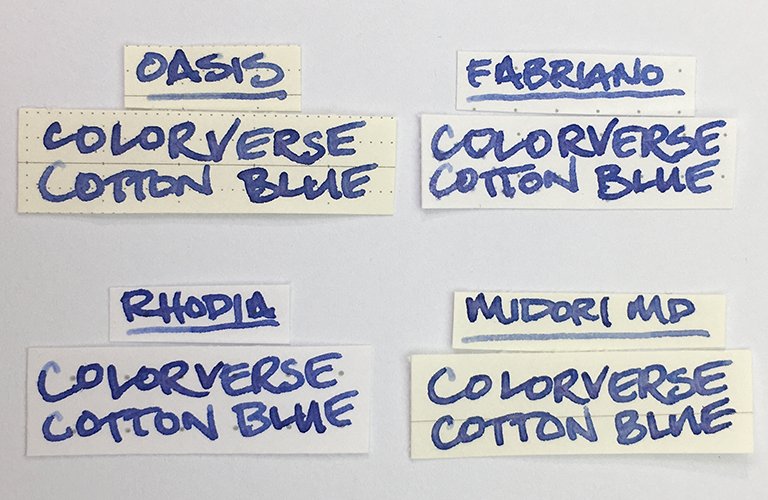 OASIS
COLORVERSE
COTTON BLUE
FABRIANO
COLORVERSE
COTTON BLUE
RHODIA
COLORVERSE
COTTON BLUE
MIDORI MD
COLORVERSE
COTTON BLUE